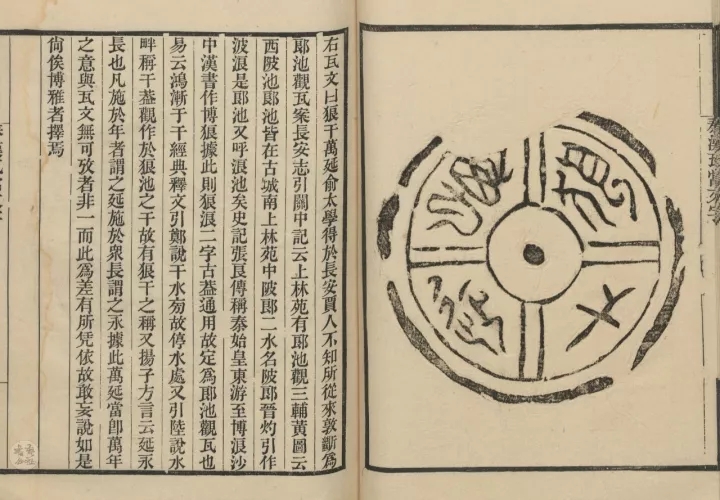 秦漢瓦當文字
狼干
萬延
右瓦文曰狼干萬延俞太學得於長安賈人不知所從來敦斷爲
郎池觀瓦案長安志引關中記云上林苑有郎池觀三輔黃圖云
西陂池郎池皆在古城南上林苑中陂郎二水名陂郎晉灼引作
波浪是郎池又呼浪池矣史記張良傳稱秦始皇東游至博浪沙
中漢書作博狼據此則狼浪二字古葢通用故定爲郎池觀瓦也
易云鴻漸于干經典釋文引鄭說干水旁故停水處又引陸說水
畔稱干葢觀作於狼池之干故有狼干之稱又揚子方言云延永
長也凡施於年者謂之延施於衆長謂之永據此萬延當卽萬年
之意與瓦文無可攷者非一而此爲差有所凭依故敢妄說如是
尙俟博雅者擇焉